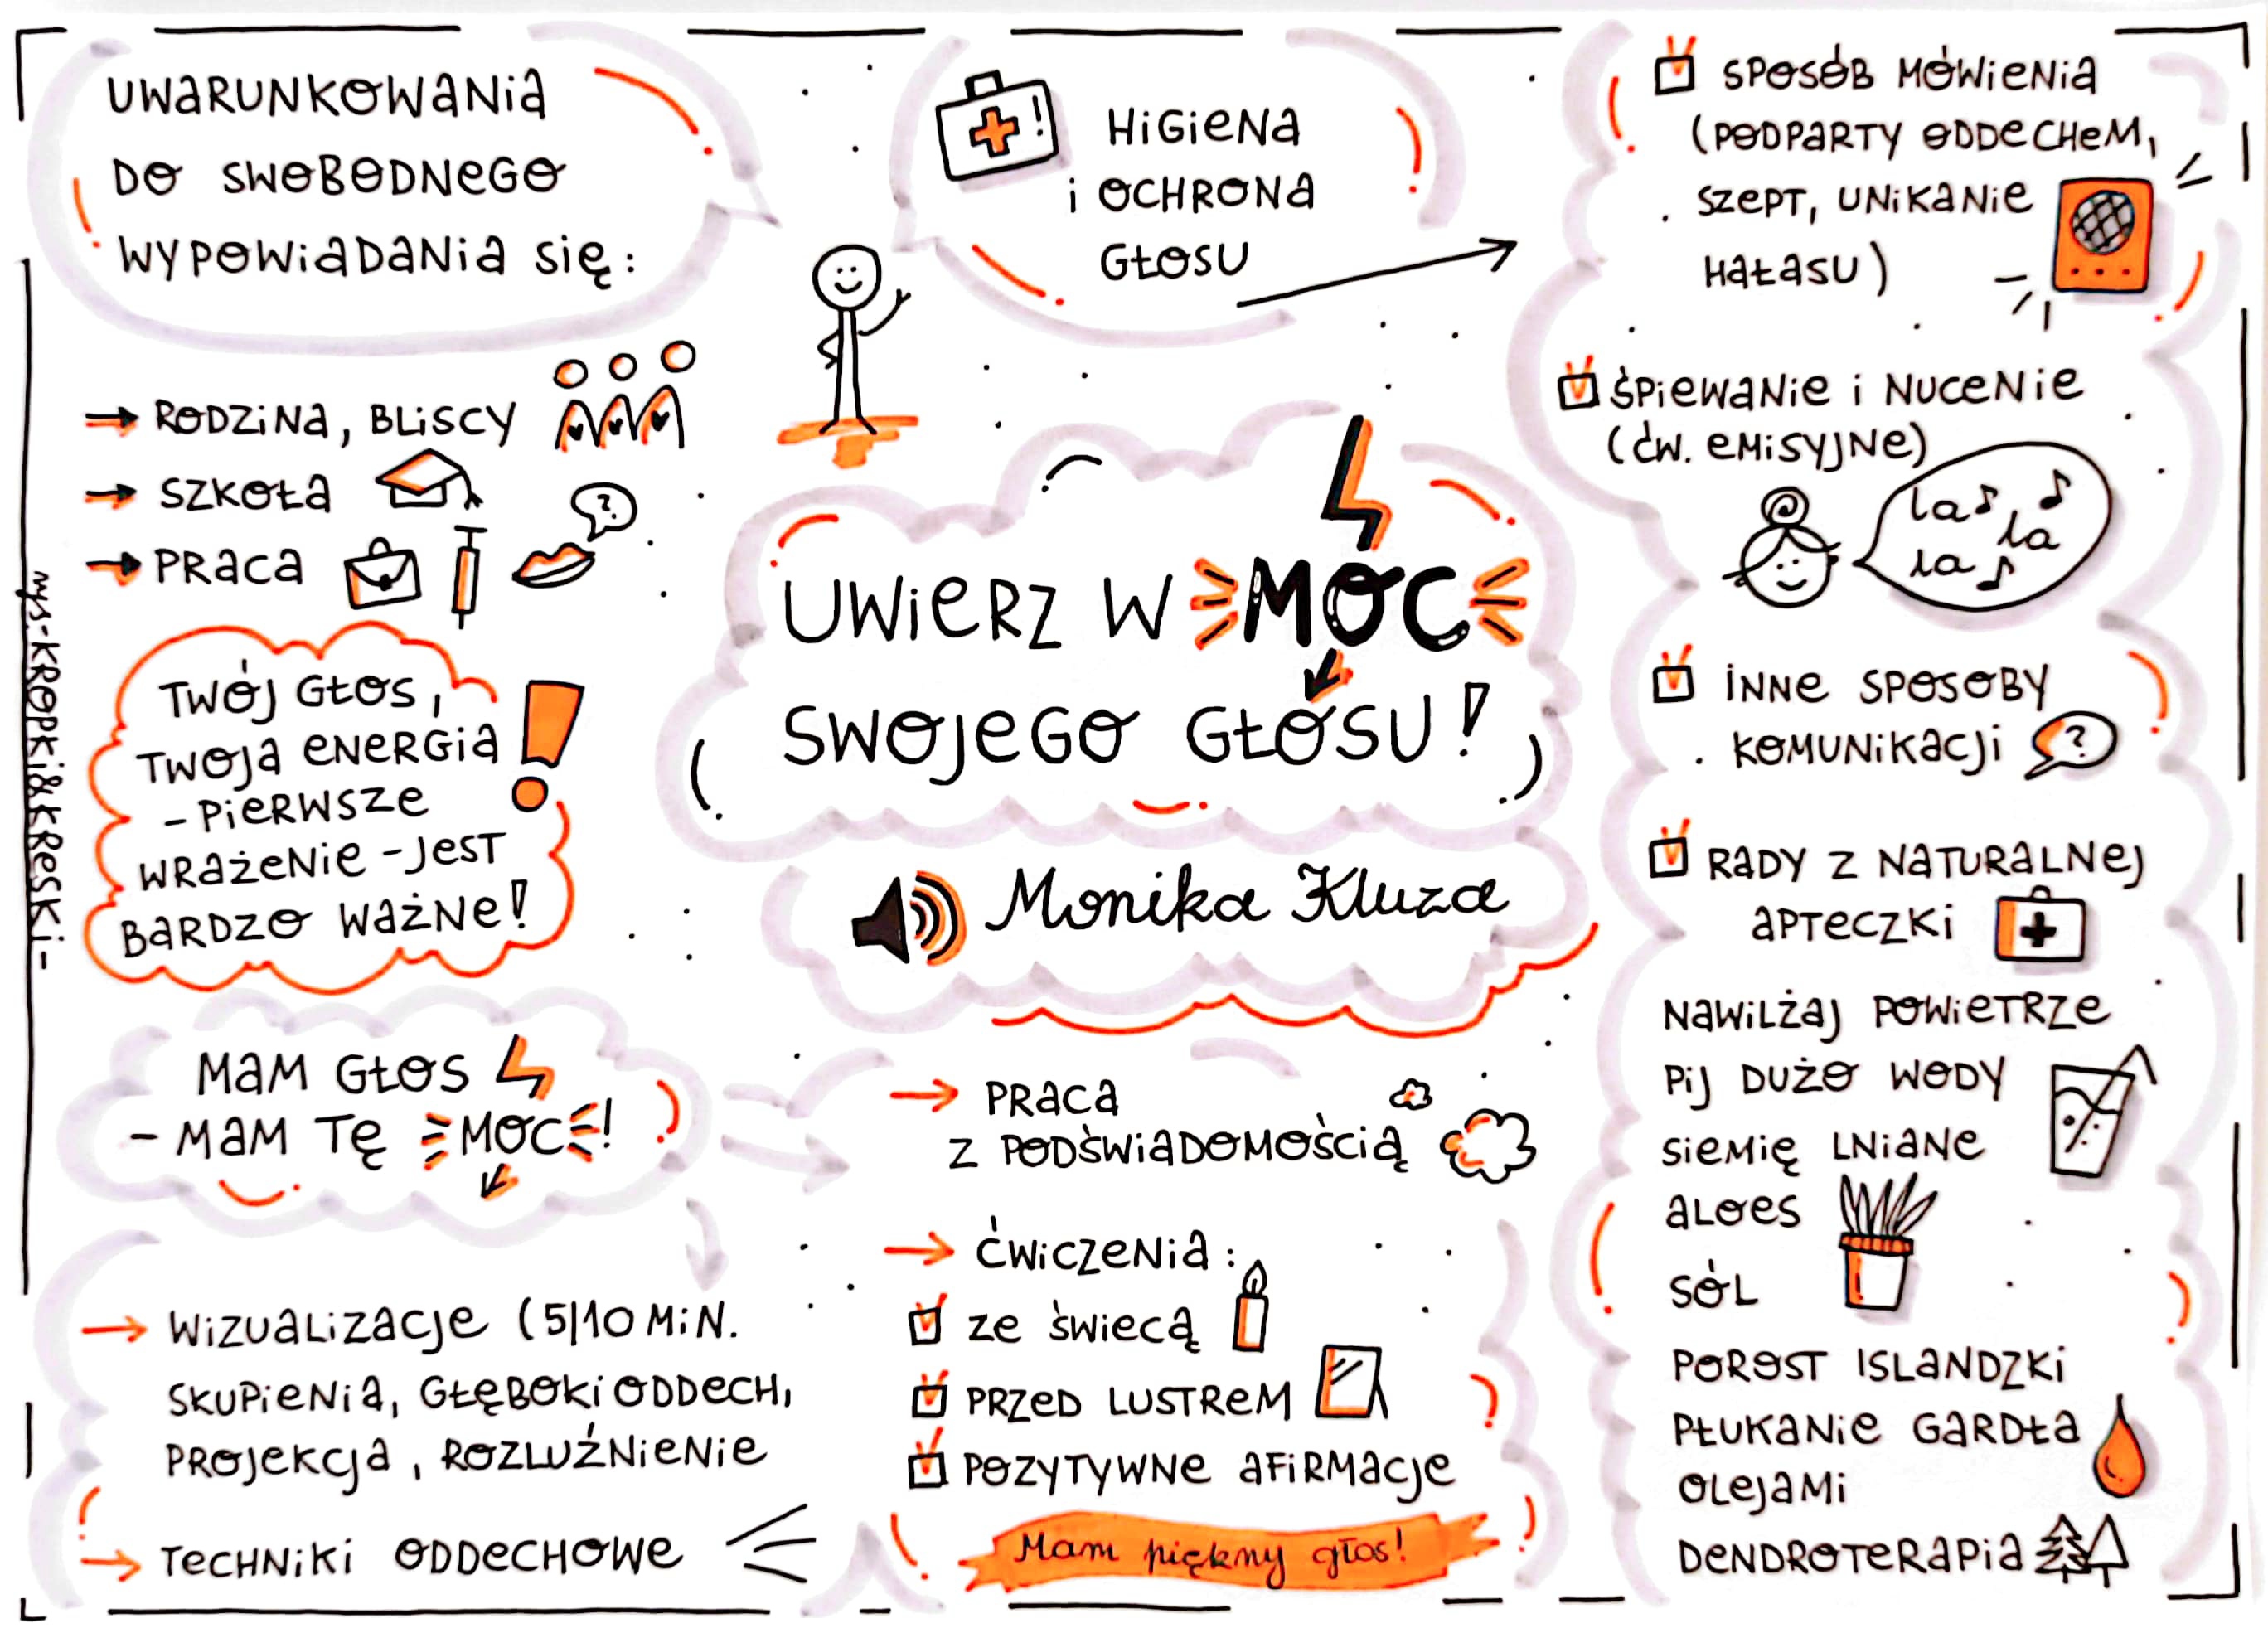 UWARUNKOWANIA
DO SWOBODNEGO
WYPOWIADANIA SIĘ:
RODZINA, BLISCY
SZKOŁA
PRACA
?
TWÓJ GŁOS,
TWOJA ENERGIA
- PIERWSZE
WRAŻENIE - JEST
BARDZO WAŻNE!
MAM GŁOS
- MAM TĘ MOC!
WIZUALIZACJE (5|10 MIN.
SKUPIENIA, GŁĘBOKI ODDECH,
PROJEKCJA, ROZLUŹNIENIE
TECHNIKI ODDECHOWE
HIGIENA
I OCHRONA
GŁOSU
UWIERZ W MOC
SWOJEGO GŁOSU!
Monika Kluza
PRACA
Z PODŚWIADOMOŚCIĄ
ĆWICZENIA:
ZE ŚWIECĄ
PRZED LUSTREM
POZYTYWNE AFIRMACJE
Mam piękny głos!
SPOSÓB MÓWIENIA
(PODPARTY ODDECHEM,
SZEPT, UNIKANIE
HAŁASU)
ŚPIEWANIE I NUCENIE
(ĆW. EMISYJNE)
la
la
la
INNE SPOSOBY
KOMUNIKACJI
?
RADY Z NATURALNEJ
APTECZKI
NAWILŻAJ POWIETRZE
PIJ DUŻO WODY
SIEMIĘ LNIANE
ALOES
SÓL
POROST ISLANDZKI
PŁUKANIE GARDŁA
OLEJAMI
DENDROTERAPIA
rys.-KROPKI&KRESKI-